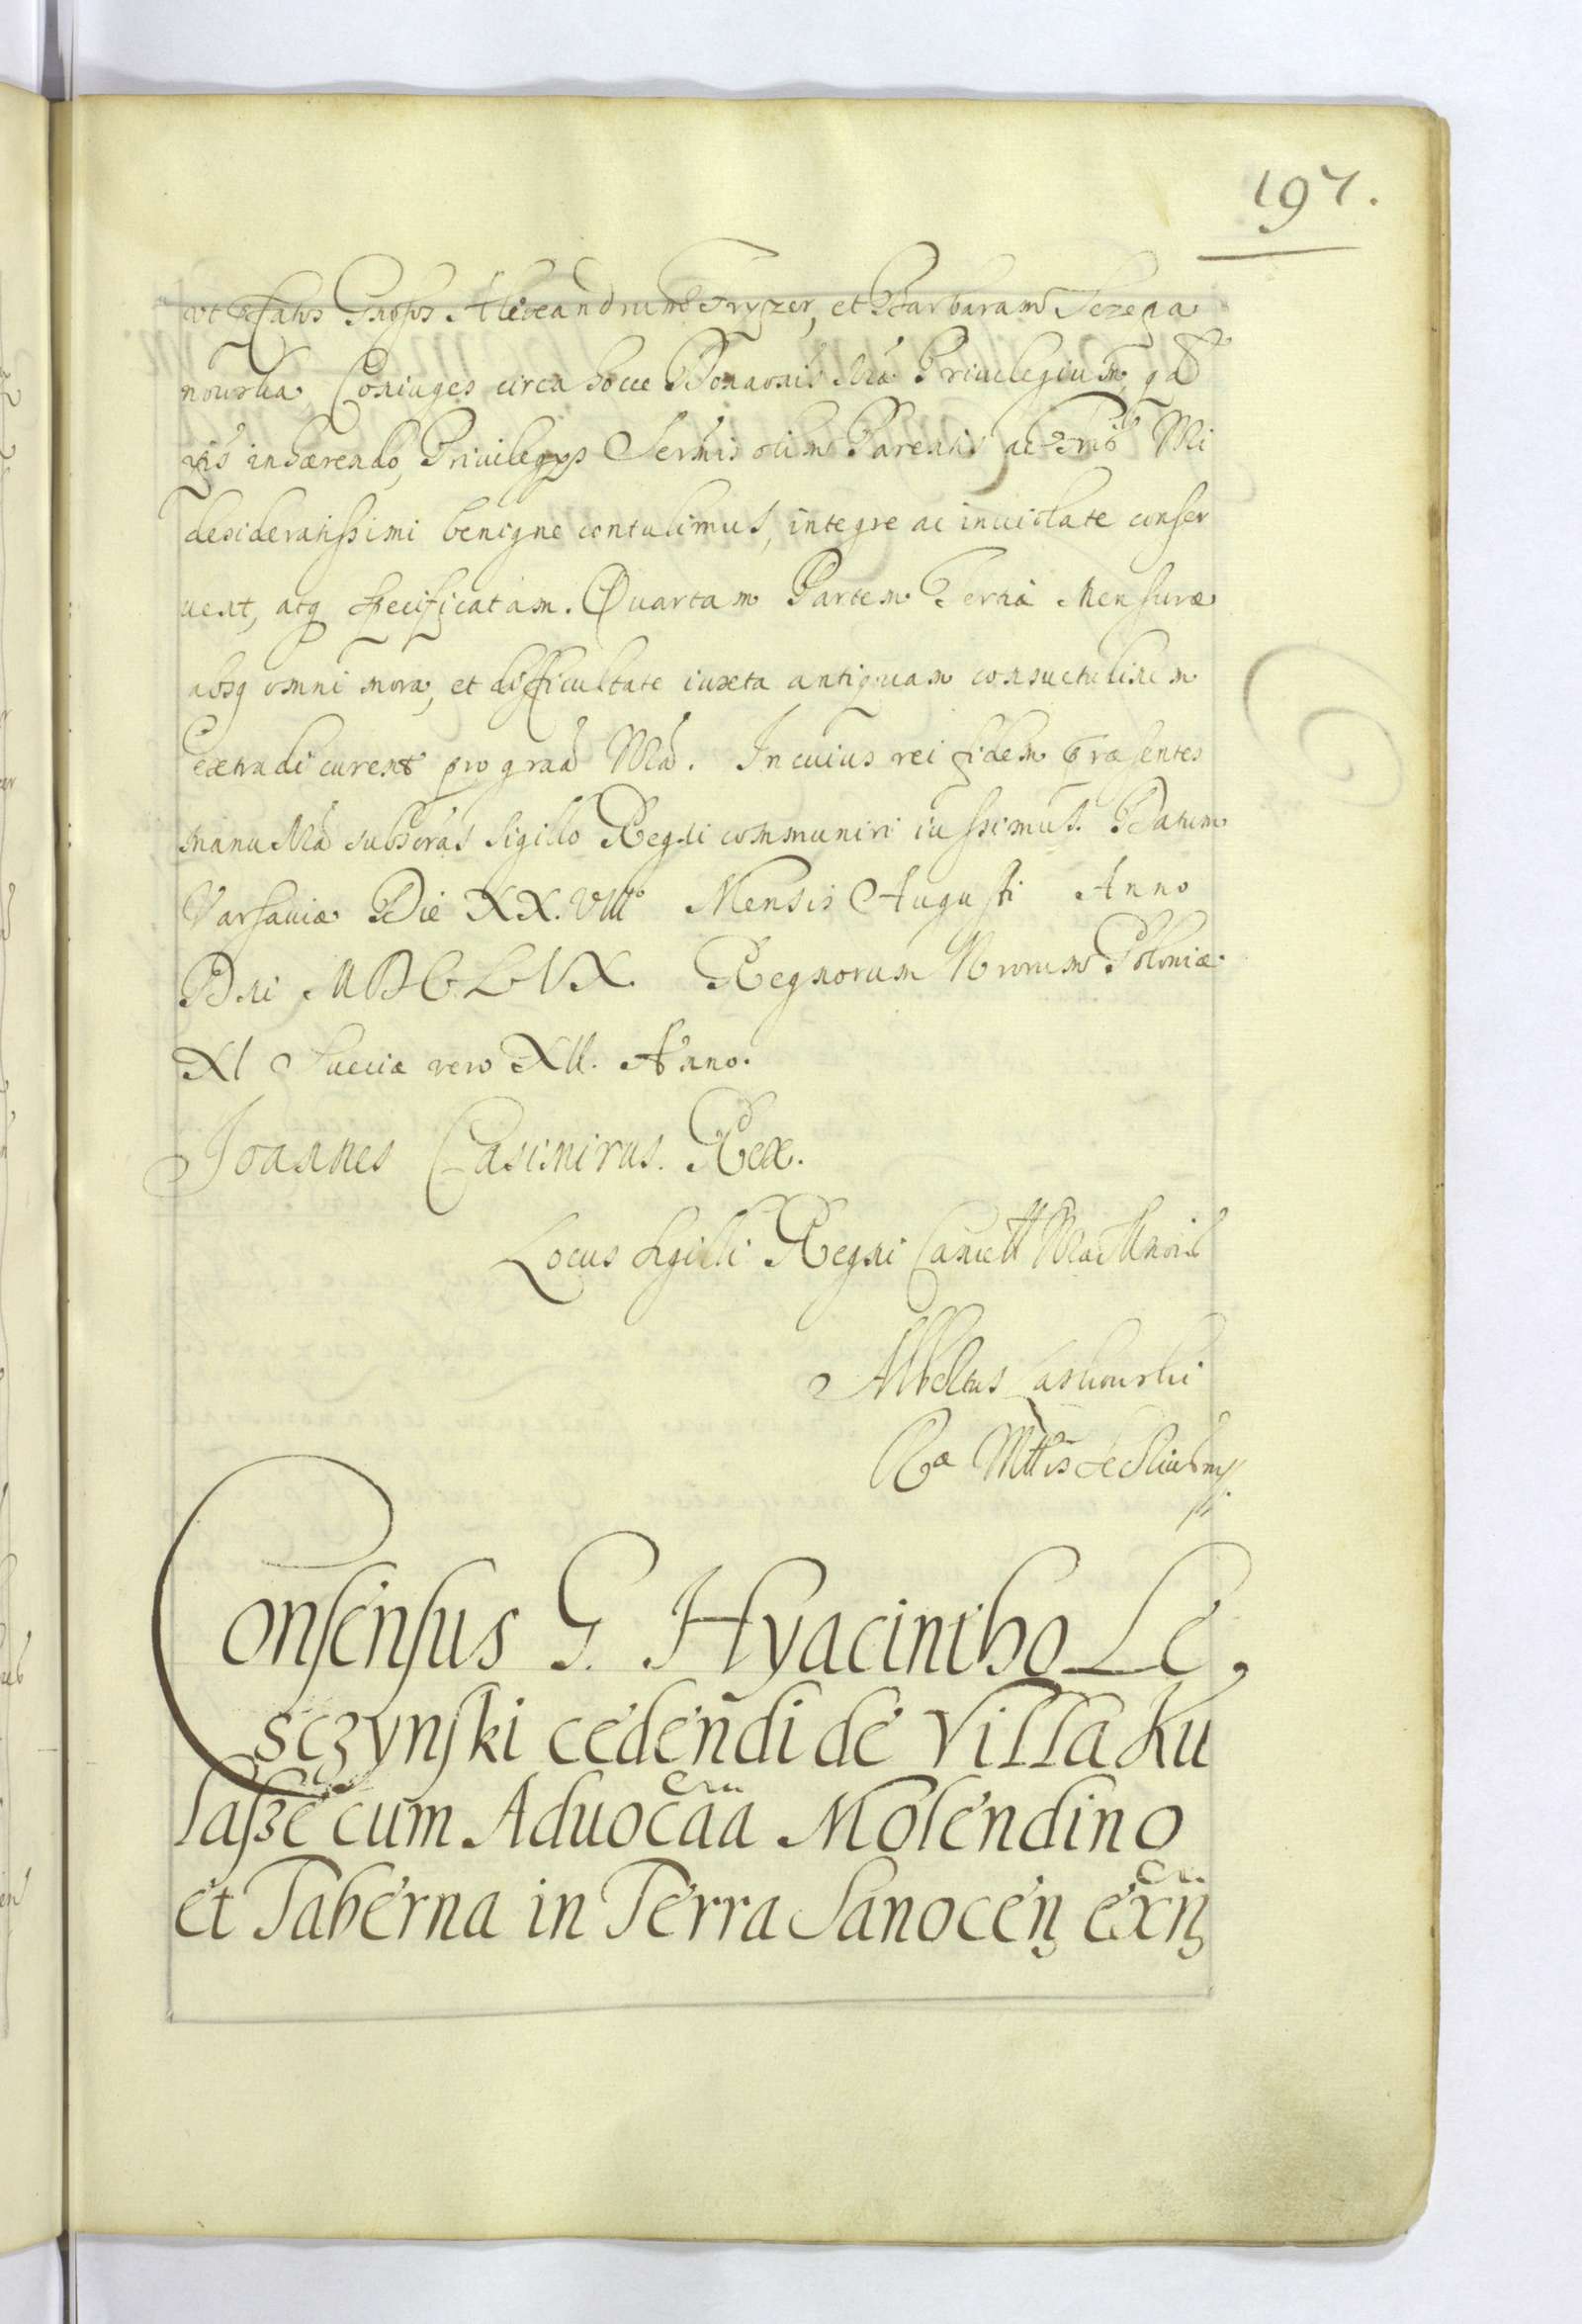 197.
ut Gnosos Alexandrum Fryzer, et Barbaram Szczega
nowska Coniuges circa hocce Donaonis Nrae Priuilegium, qd
ijs inhærendo, Priuilegijs Sermi olim Parentis ac Fris Nri
desideratissimi benigne contulimus, integre ac inuiolate conser
uent, atq specificatam. Quartam Partem Tertiæ Mensuræ
absq omni mora, et difficultate iuxta antiquam consuetudinem
extradi curent pro graa Nra. In cuius rei fidem præsentes
manu Nra subscras sigillo Regni communiri iussimus. Datum
Varsauiæ Die XX.VIII Mensis Augusti Anno
Dni MDCLVX. Regnorum Nrorum Poloniæ
XI Sueciæ vero XII. Anno.
Joannes Casimirus. Rex.
Locus sigilli Regni Cancell
Albertus
Ræ Mttis
Consensus G. Hyacintho Le,
sczynski cedendi de Villa Ku
lasze cum Aduocaa Molendino
et Taberna in Terra Sanocen exn